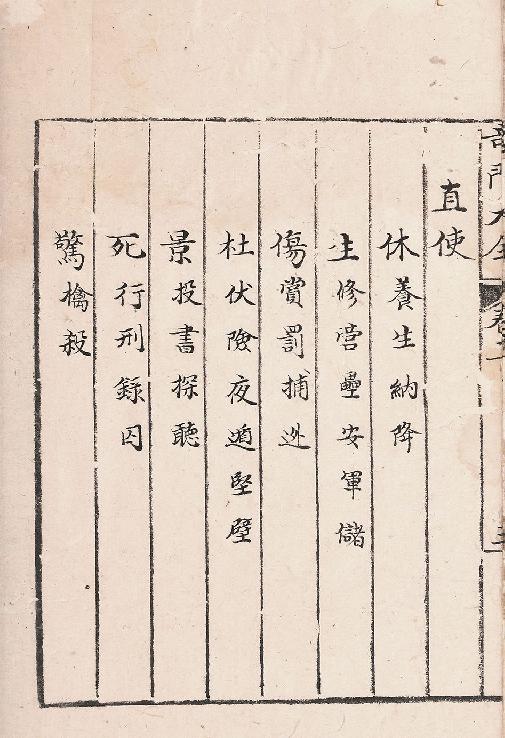 奇門大全 卷二 三
直使
休養生納降
生修营壘安軍儲
傷賞罰捕逃
杜伏險夜遁堅壁
景投書探聽
死行刑録囚
驚擒殺